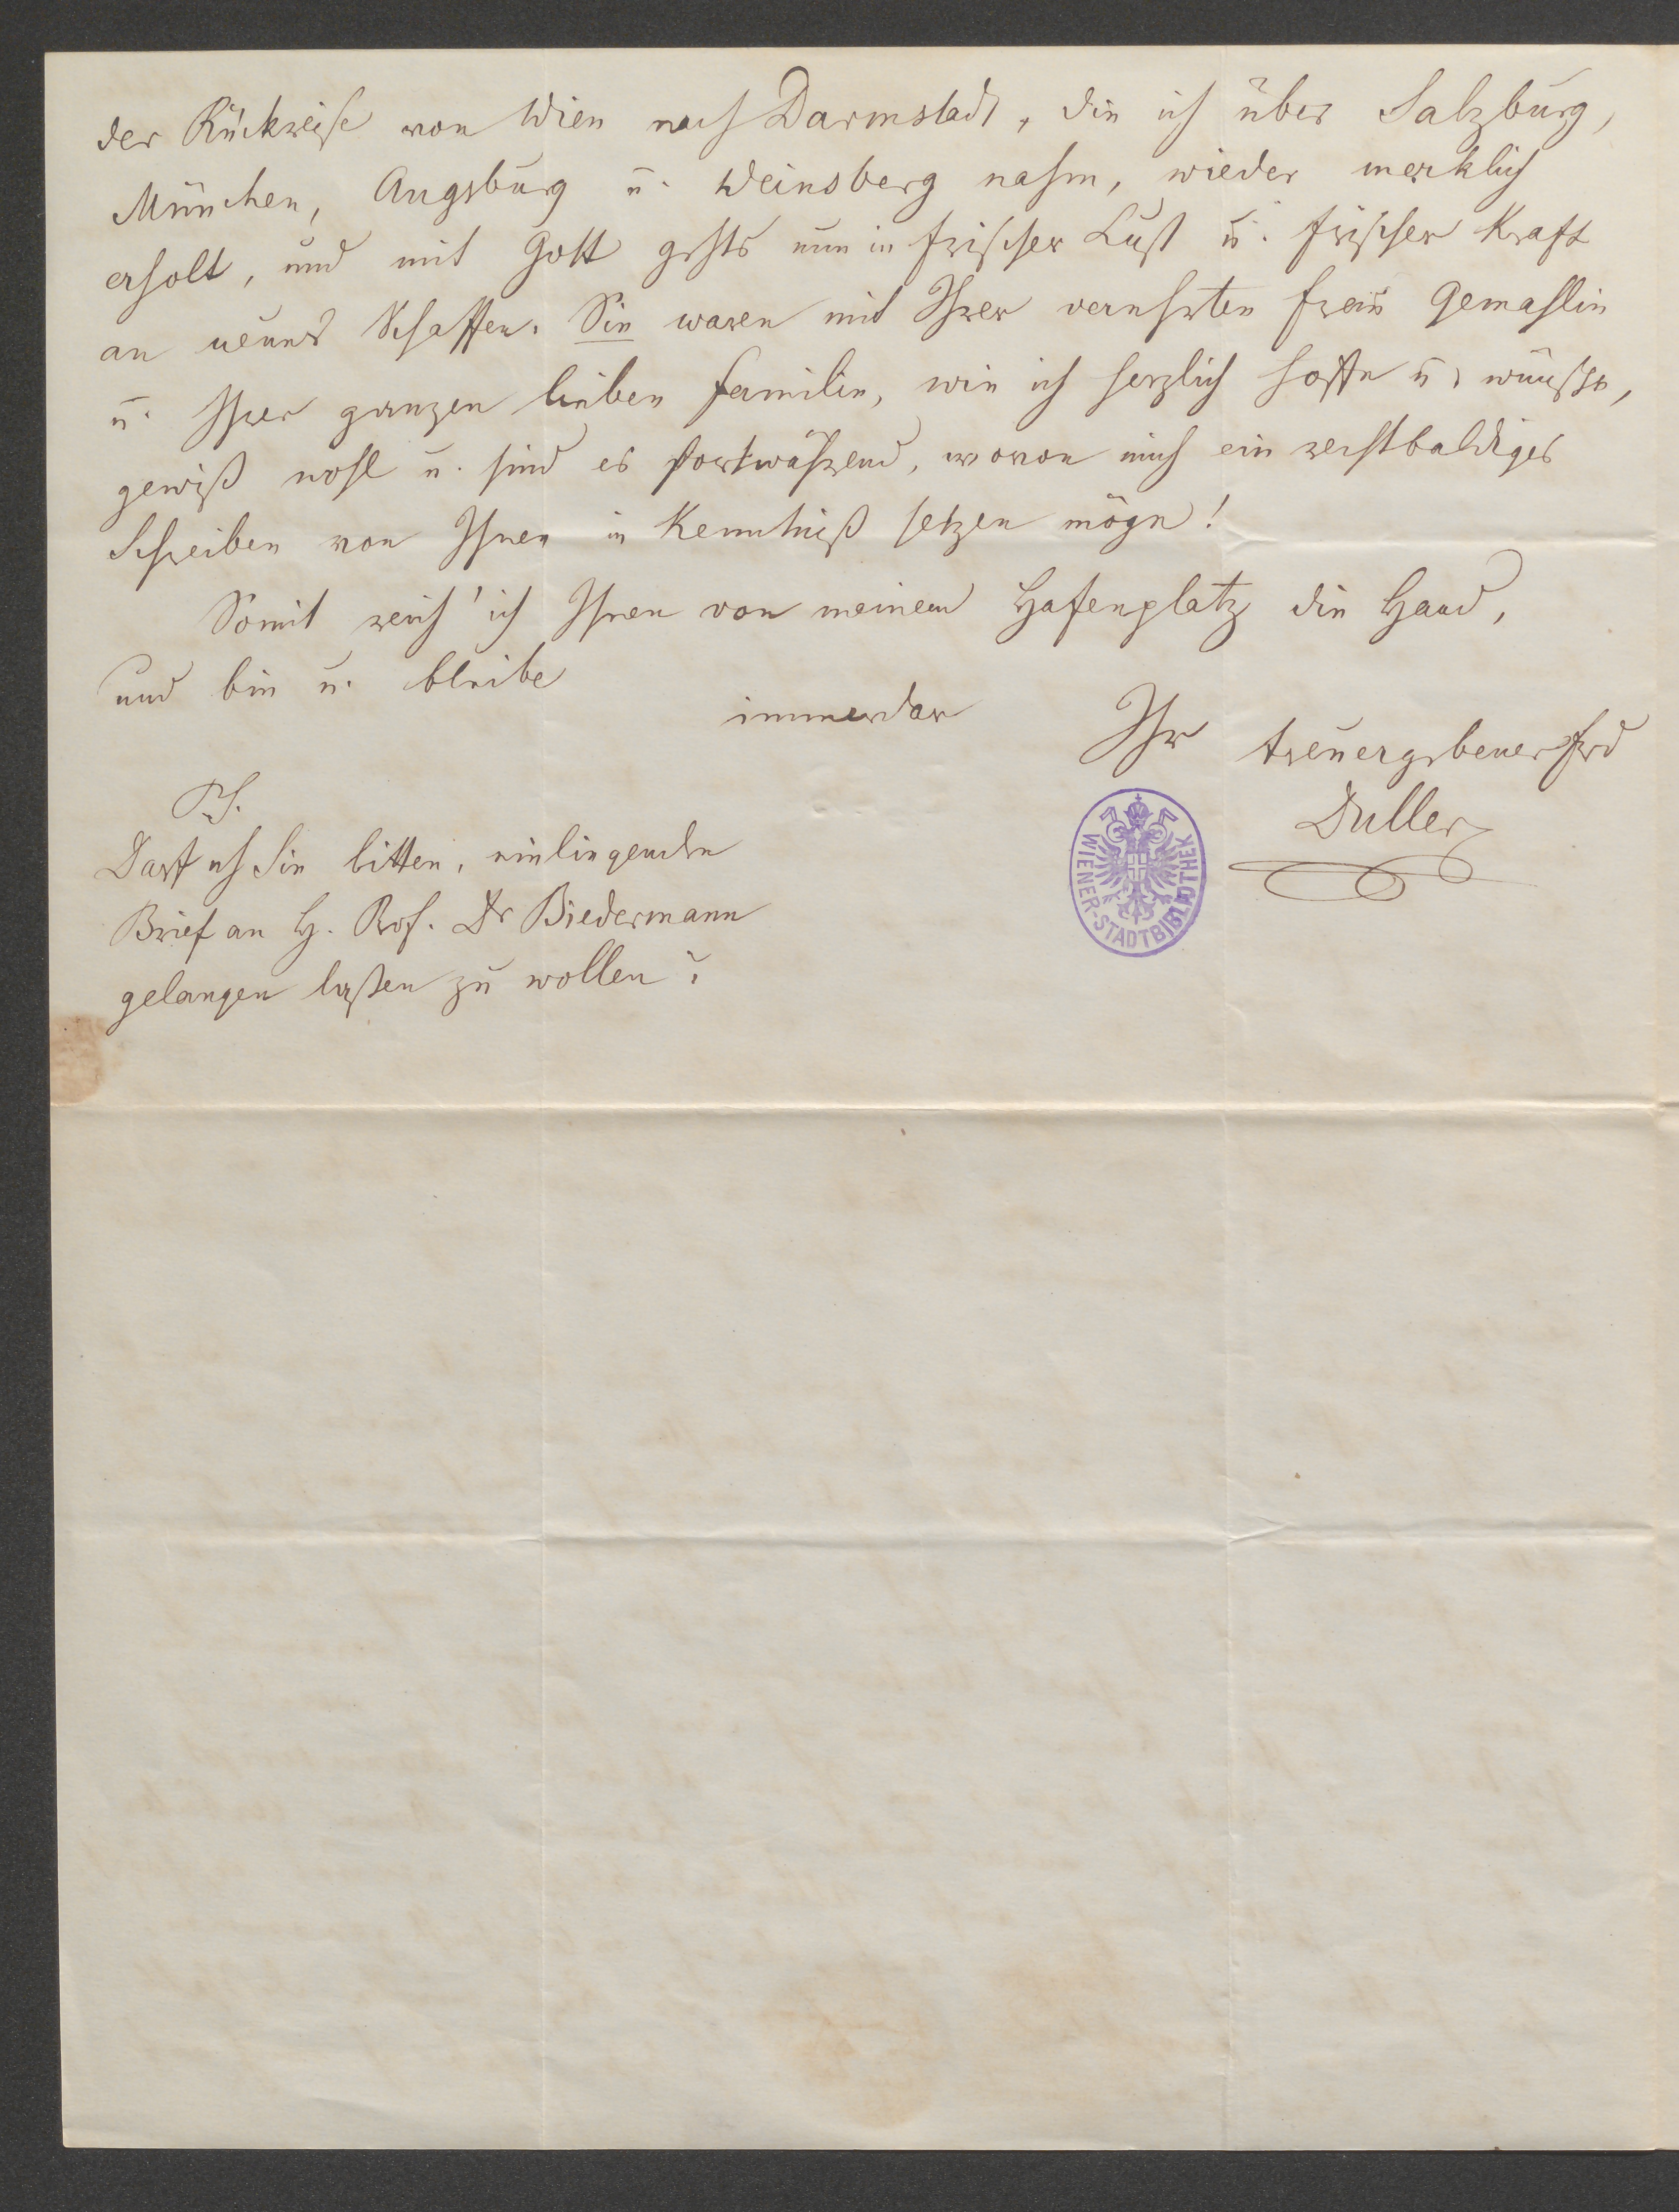 der Rückreise von Wien nach Darmstadt, die ich über Salzburg,
München, Augsburg u. Weinsberg nahm, wieder merklich
erholt, und mit Gott gehts nun in frischer Lust u. frischer Kraft
an neues Schaffen. Sie waren mit Ihrer verehrten Frau Gemahlin
u. Ihrer ganzen lieben Familie, wie ich herzlich hoffe u. wünsche,
gewiß wohl u. sind es fortwährend, wovon mich ein rechtbaldiges
Schreiben von Ihnen in Kenntniß setzen möge!
Somit reich' ich Ihnen von meinem Hafenplatz die Hand,
und bin u. bleibe
immerdar
Ihr treuergebener Frd
Duller
PS.
Darf ich Sie bitten, einliegenden
Brief an H. Prof. Dr Biedermann
gelangen laßen zu wollen?
WIENER-STADTBIBLIOTHEK